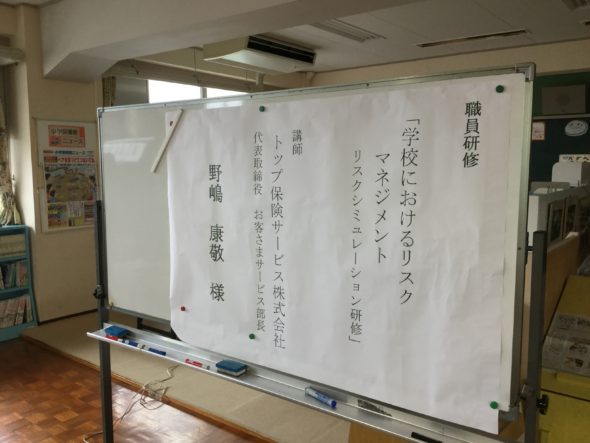 職員研修
「学校におけるリスク
マネジメント
リスクシミュレーション研修」
講師
トップ保険サービス株式会社
代表取締役　お客さまサービス部長
野嶋　康敬　様
ニュース